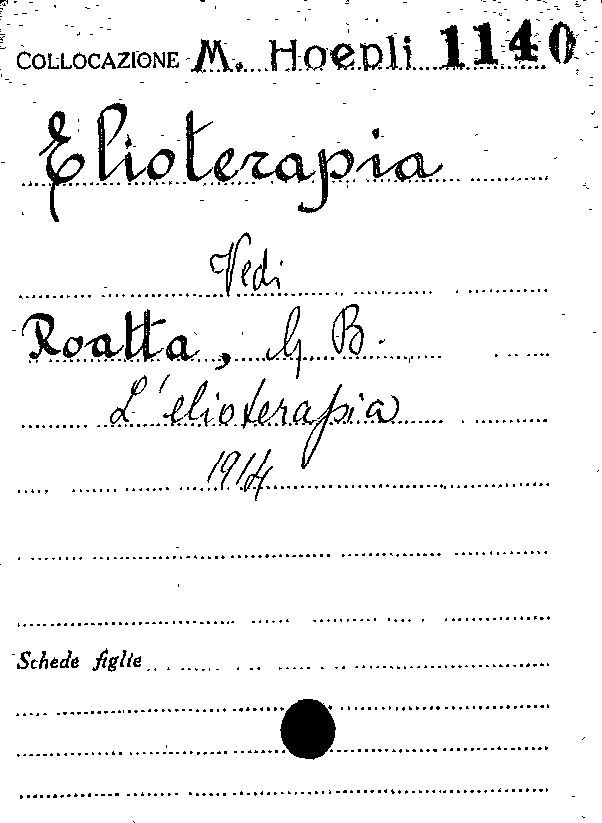 COLLOCAZIONE M. Hoepli 1140
Elioterapia
Vedi
Roatta, G. B.
L'elioterapia
1914
Schede figlie